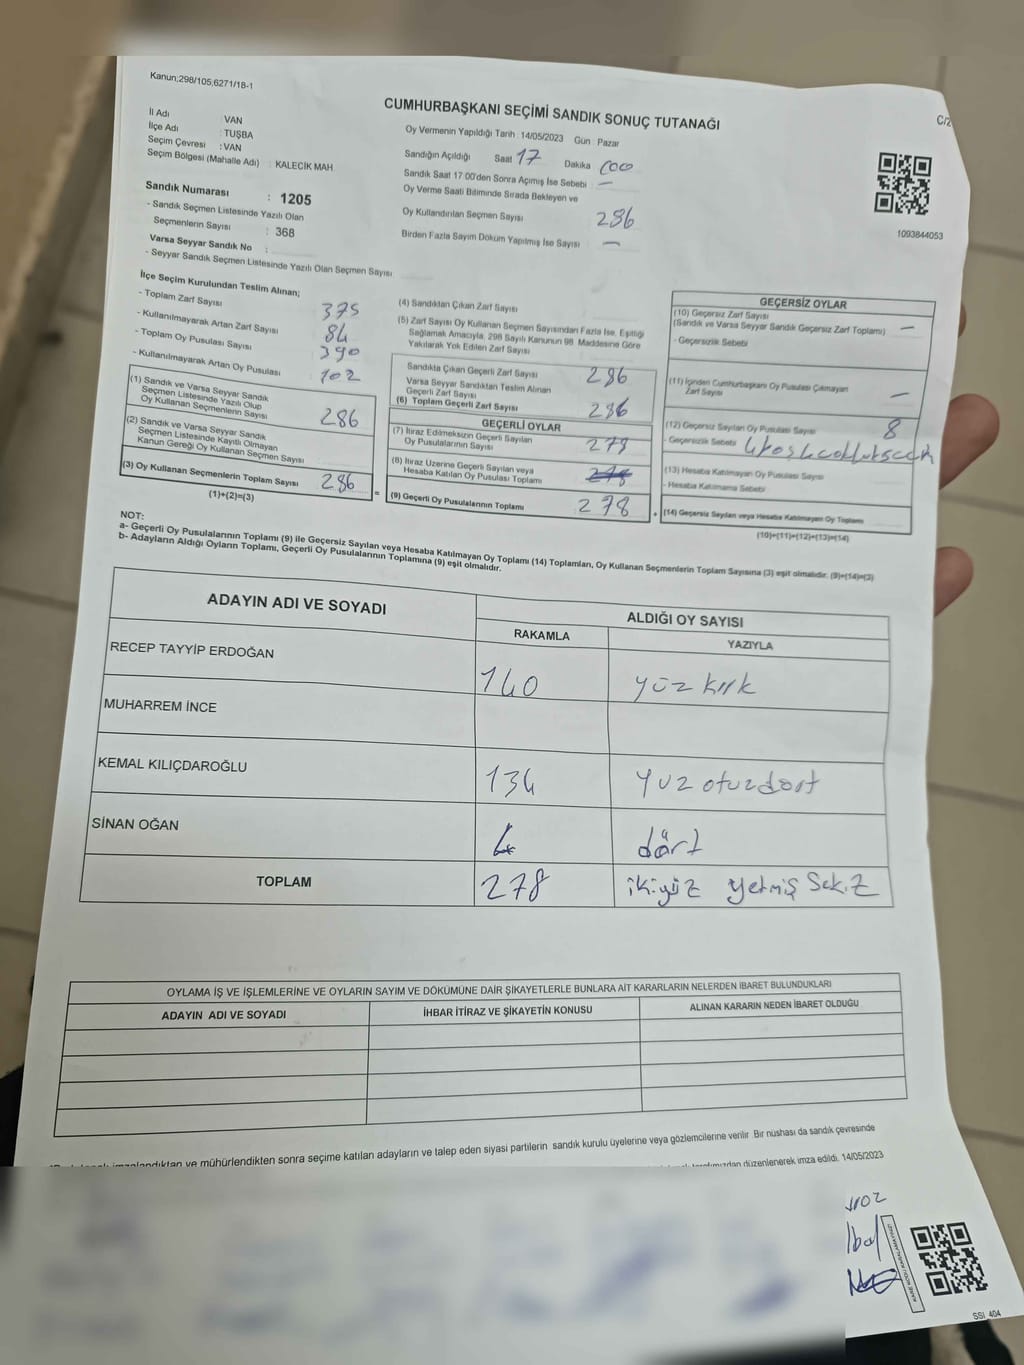 Kanun;298/105;6271/18-1
CUMHURBAŞKANI SEÇİMİ SANDIK SONUÇ TUTANAĞI
C/2
İl Adı : VAN
İlçe Adı : TUŞBA
Seçim Çevresi : VAN
Seçim Bölgesi (Mahalle Adı) : KALECİK MAH
Sandık Numarası : 1205
- Sandık Seçmen Listesinde Yazılı Olan
Seçmenlerin Sayısı : 368
Varsa Seyyar Sandık No :
- Seyyar Sandık Seçmen Listesinde Yazılı Olan Seçmen Sayısı
Oy Vermenin Yapıldığı Tarih : 14/05/2023 Gün : Pazar
Sandığın Açıldığı Saat 17 Dakika 00
Sandık Saat 17:00'den Sonra Açımış İse Sebebi : —
Oy Verme Saati Bitiminde Sırada Bekleyen ve
Oy Kullandırılan Seçmen Sayısı 286
Birden Fazla Sayım Döküm Yapılmış İse Sayısı : —
1093844053
İlçe Seçim Kurulundan Teslim Alınan;
- Toplam Zarf Sayısı 375
- Kullanılmayarak Artan Zarf Sayısı 84
- Toplam Oy Pusulası Sayısı 390
- Kullanılmayarak Artan Oy Pusulası 102
(1) Sandık ve Varsa Seyyar Sandık
Seçmen Listesinde Yazılı Olup
Oy Kullanan Seçmenlerin Sayısı 286
(2) Sandık ve Varsa Seyyar Sandık
Seçmen Listesinde Kayıtlı Olmayan
Kanun Gereği Oy Kullanan Seçmen Sayısı
(3) Oy Kullanan Seçmenlerin Toplam Sayısı 286
(1)+(2)=(3)
=
(4) Sandıktan Çıkan Zarf Sayısı
(5) Zarf Sayısı Oy Kullanan Seçmen Sayısından Fazla İse, Eşitliği
Sağlamak Amacıyla, 298 Sayılı Kanunun 98. Maddesine Göre
Yakılarak Yok Edilen Zarf Sayısı
Sandıkta Çıkan Geçerli Zarf Sayısı 286
Varsa Seyyar Sandıktan Teslim Alınan
Geçerli Zarf Sayısı
(6) Toplam Geçerli Zarf Sayısı 286
GEÇERLİ OYLAR
(7) İtiraz Edilmeksizin Geçerli Sayılan
Oy Pusulalarının Sayısı 278
(8) İtiraz Üzerine Geçerli Sayılan veya
Hesaba Katılan Oy Pusulası Toplamı 278
(9) Geçerli Oy Pusulalarının Toplamı 278
+
GEÇERSİZ OYLAR
(10) Geçersiz Zarf Sayısı
(Sandık ve Varsa Seyyar Sandık Geçersiz Zarf Toplamı) —
- Geçersizlik Sebebi
(11) İçinden Cumhurbaşkanı Oy Pusulası Çıkmayan
Zarf Sayısı —
(12) Geçersiz Sayılan Oy Pusulası Sayısı 8
- Geçersizlik Sebebi
(13) Hesaba Katılmayan Oy Pusulası Sayısı
- Hesaba Katılmama Sebebi
(14) Geçersiz Sayılan veya Hesaba Katılmayan Oy Toplamı
(10)+(11)+(12)+(13)=(14)
NOT:
a- Geçerli Oy Pusulalarının Toplamı (9) ile Geçersiz Sayılan veya Hesaba Katılmayan Oy Toplamı (14) Toplamları, Oy Kullanan Seçmenlerin Toplam Sayısına (3) eşit olmalıdır. (9)+(14)=(3)
b- Adayların Aldığı Oyların Toplamı, Geçerli Oy Pusulalarının Toplamına (9) eşit olmalıdır.
ADAYIN ADI VE SOYADI
ALDIĞI OY SAYISI
RAKAMLA YAZIYLA
RECEP TAYYİP ERDOĞAN 140 yüz kırk
MUHARREM İNCE
KEMAL KILIÇDAROĞLU 134 yuz otuzdort
SİNAN OĞAN 4 dört
TOPLAM 278 ikiyüz yetmiş Sekiz
OYLAMA İŞ VE İŞLEMLERİNE VE OYLARIN SAYIM VE DÖKÜMÜNE DAİR ŞİKAYETLERLE BUNLARA AİT KARARLARIN NELERDEN İBARET BULUNDUKLARI
ADAYIN ADI VE SOYADI İHBAR İTİRAZ VE ŞİKAYETİN KONUSU ALINAN KARARIN NEDEN İBARET OLDUĞU
ve mühürlendikten sonra seçime katılan adayların ve talep eden siyasi partilerin sandık kurulu üyelerine veya gözlemcilerine verilir. Bir nüshası da sandık çevresinde
düzenlenerek imza edildi. 14/05/2023
SSİ 404